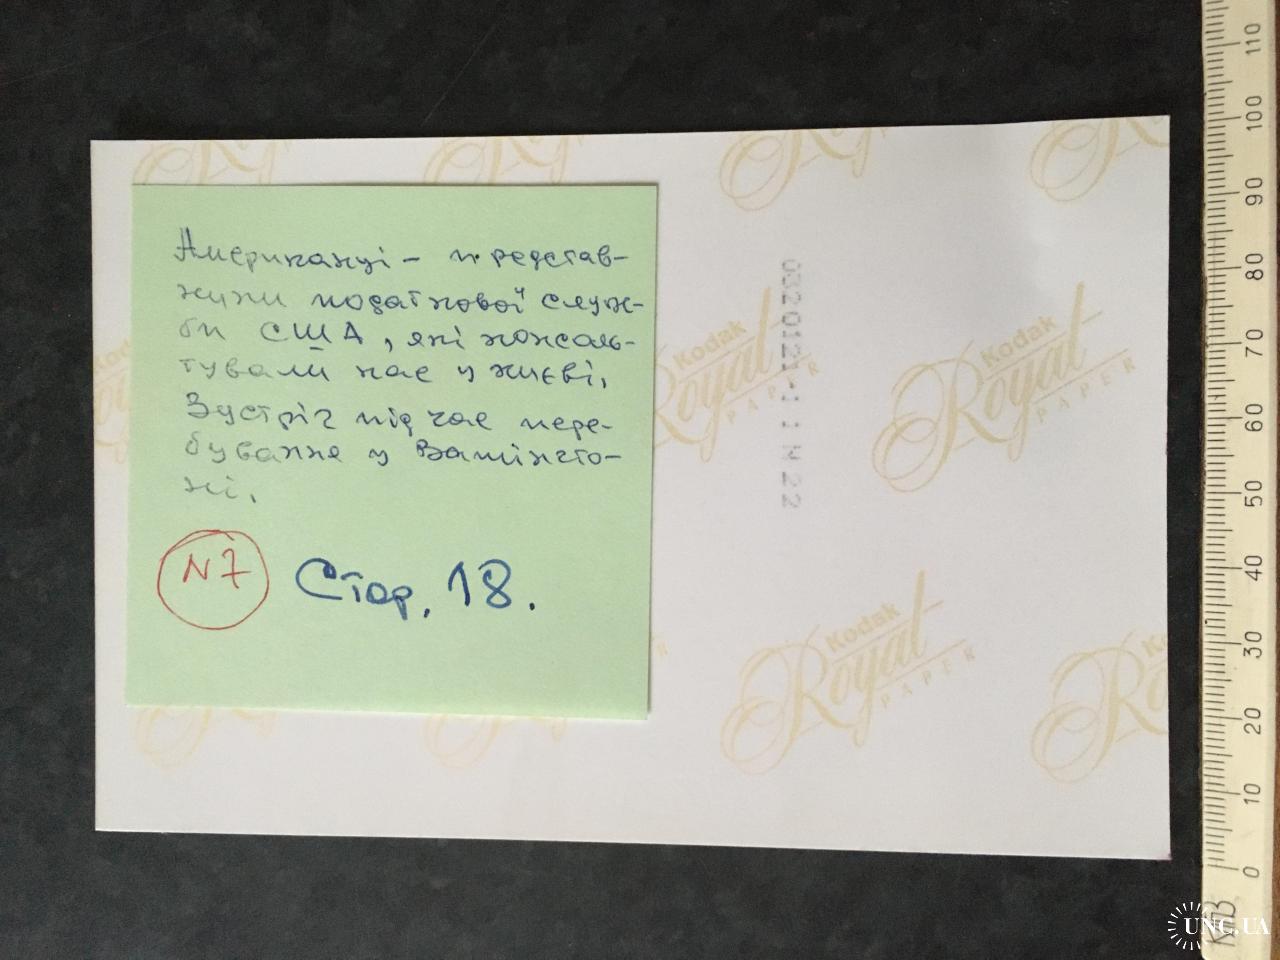 Американці – представ-
ники податкової служ-
би США, які консуль-
тували нас у Києві.
Зустріч під час пере-
бування у Вашінгто-
ні.
N7
Стор. 18.
0320121-1 1 N 22
Kodak
Royal
PAPER
Kodak
Royal
PAPER
Kodak
Royal
PAPER
110
100
90
80
70
60
50
40
30
20
10
0
КПВ
UNC.UA